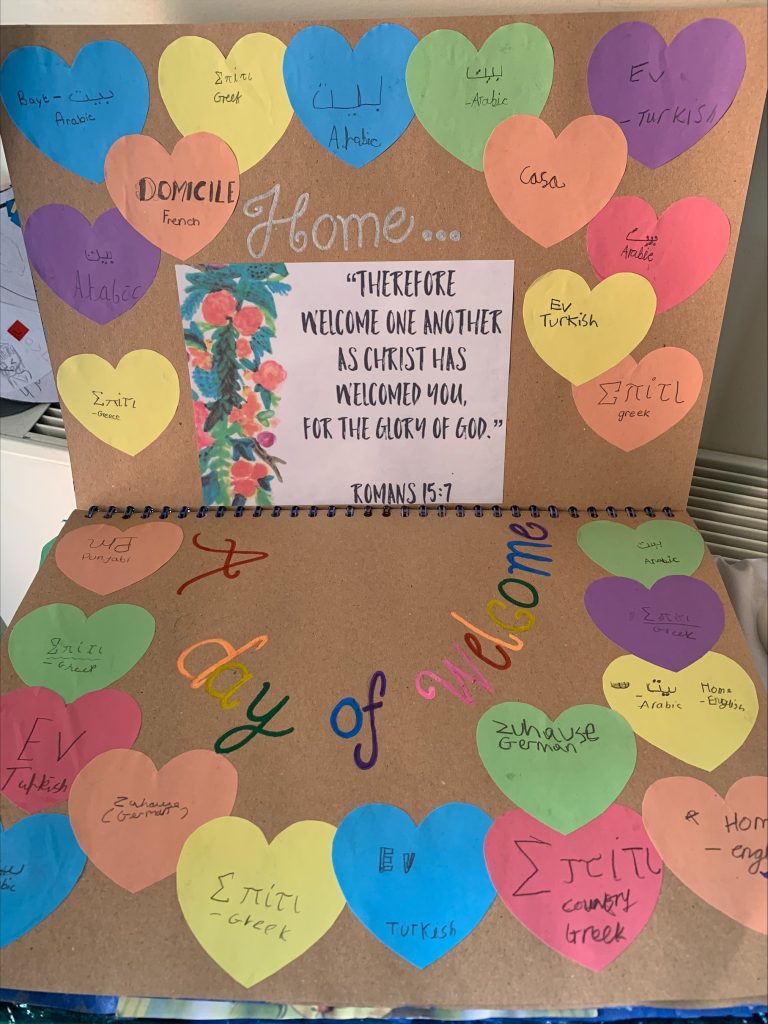 Bayt - بيت
Arabic
Σπίτι
Greek
بيت
Arabic
بيت
-Arabic
Ev
-Turkish
DOMICILE
French
Casa
Home...
Arabic
Arabic
Ev
Turkish
Σπίτι
-Greece
Σπίτι
greek
“THEREFORE
WELCOME ONE ANOTHER
AS CHRIST HAS
WELCOMED YOU,
FOR THE GLORY OF GOD.”
ROMANS 15:7
Punjabi
A
day of welcome
بيت
Arabic
Σπίτι
-Greek
Σπιτι
Greek
بيت Home
-Arabic -English
EV
Turkish
Zuhause
(German)
Zuhause
German
Σπίτι
-Greek
Ev
Turkish
Σπίτι
country
Greek
Hom
- engl
bic